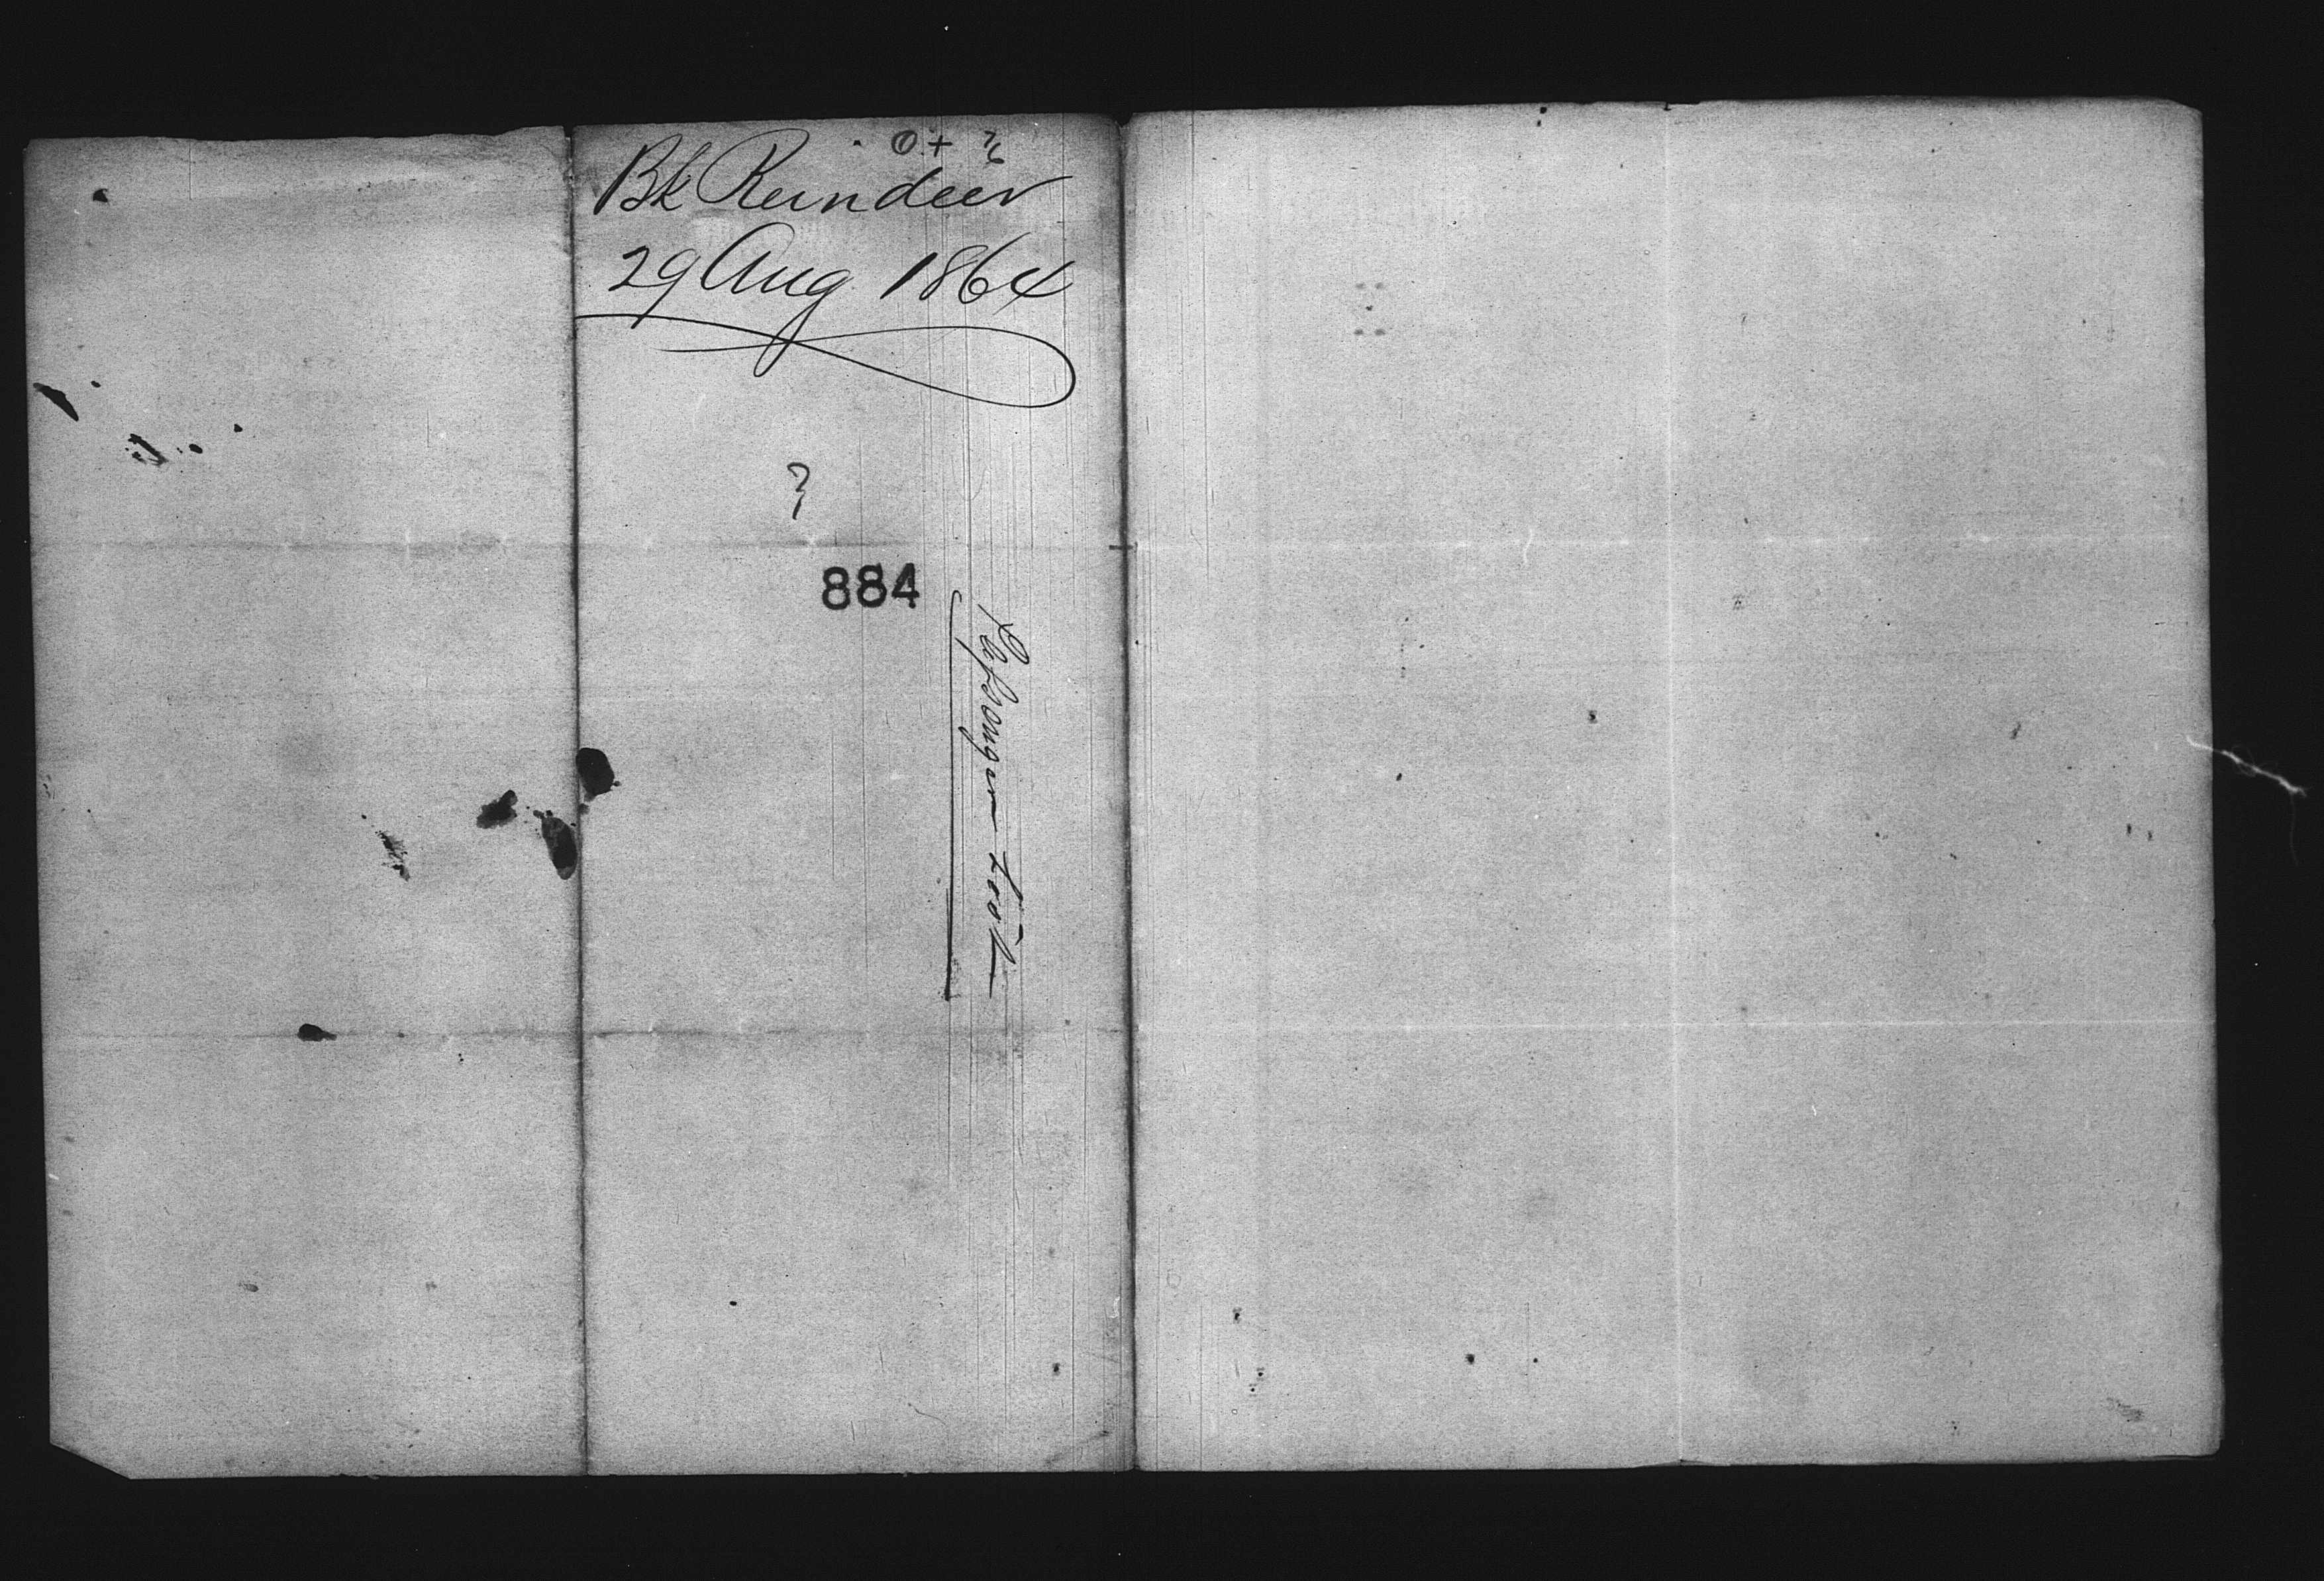 0+ 7/6
Bk Reindeer
29 Aug 1864
?
884
Passenger List